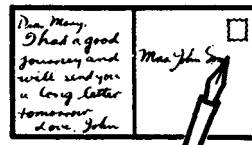 Dear Mary,
I had a good
journey and
will send you
a long letter
tomorrow
Love. John
Mrs John